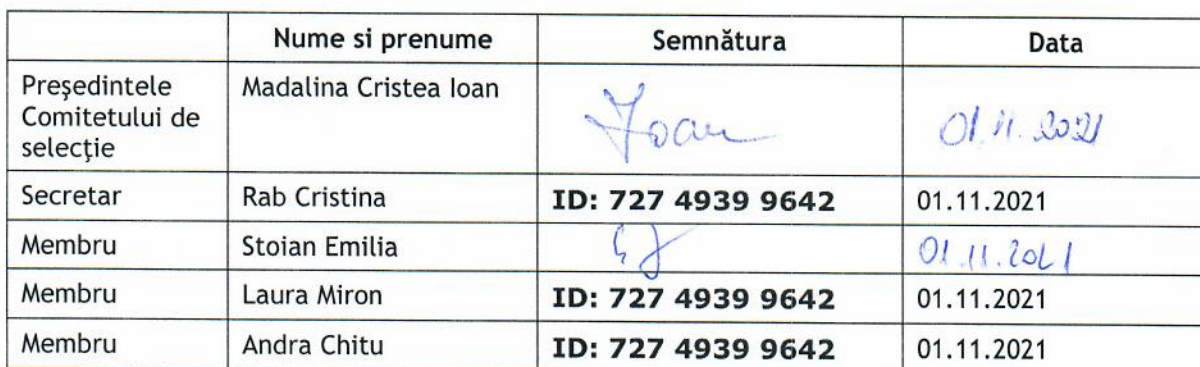 Nume si prenume Semnătura Data
Preşedintele Comitetului de selecţie Madalina Cristea Ioan Ioan 01.11.2021
Secretar Rab Cristina ID: 727 4939 9642 01.11.2021
Membru Stoian Emilia 01.11.2021
Membru Laura Miron ID: 727 4939 9642 01.11.2021
Membru Andra Chitu ID: 727 4939 9642 01.11.2021